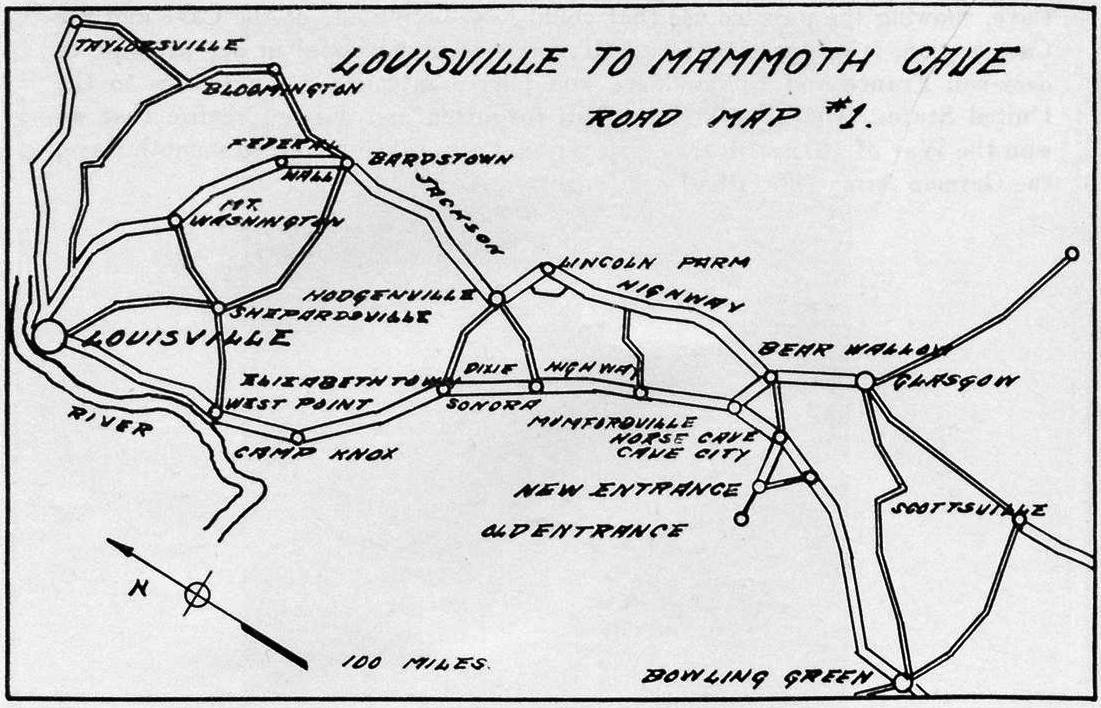 LOUISVILLE TO MAMMOTH CAVE
ROAD MAP #1.
TAYLORSVILLE
BLOOMINGTON
FEDERAL
HALL
BARDSTOWN
JACKSON
HIGHWAY
MT.
WASHINGTON
LINCOLN FARM
HODGENVILLE
SHEPARDSVILLE
LOUISVILLE
BEAR WALLOW
GLASGOW
ELIZABETHTOWN
DIXIE HIGHWAY
WEST POINT
SONORA
RIVER
MUMFORDVILLE
HORSE CAVE
CAVE CITY
CAMP KNOX
NEW ENTRANCE
OLD ENTRANCE
SCOTTSVILLE
N
100 MILES.
BOWLING GREEN